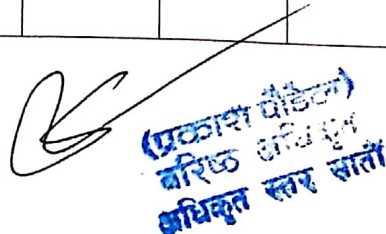 (प्रकाश पौडेल)
वरिष्ठ अधिकृत
अधिकृत स्तर सातौं